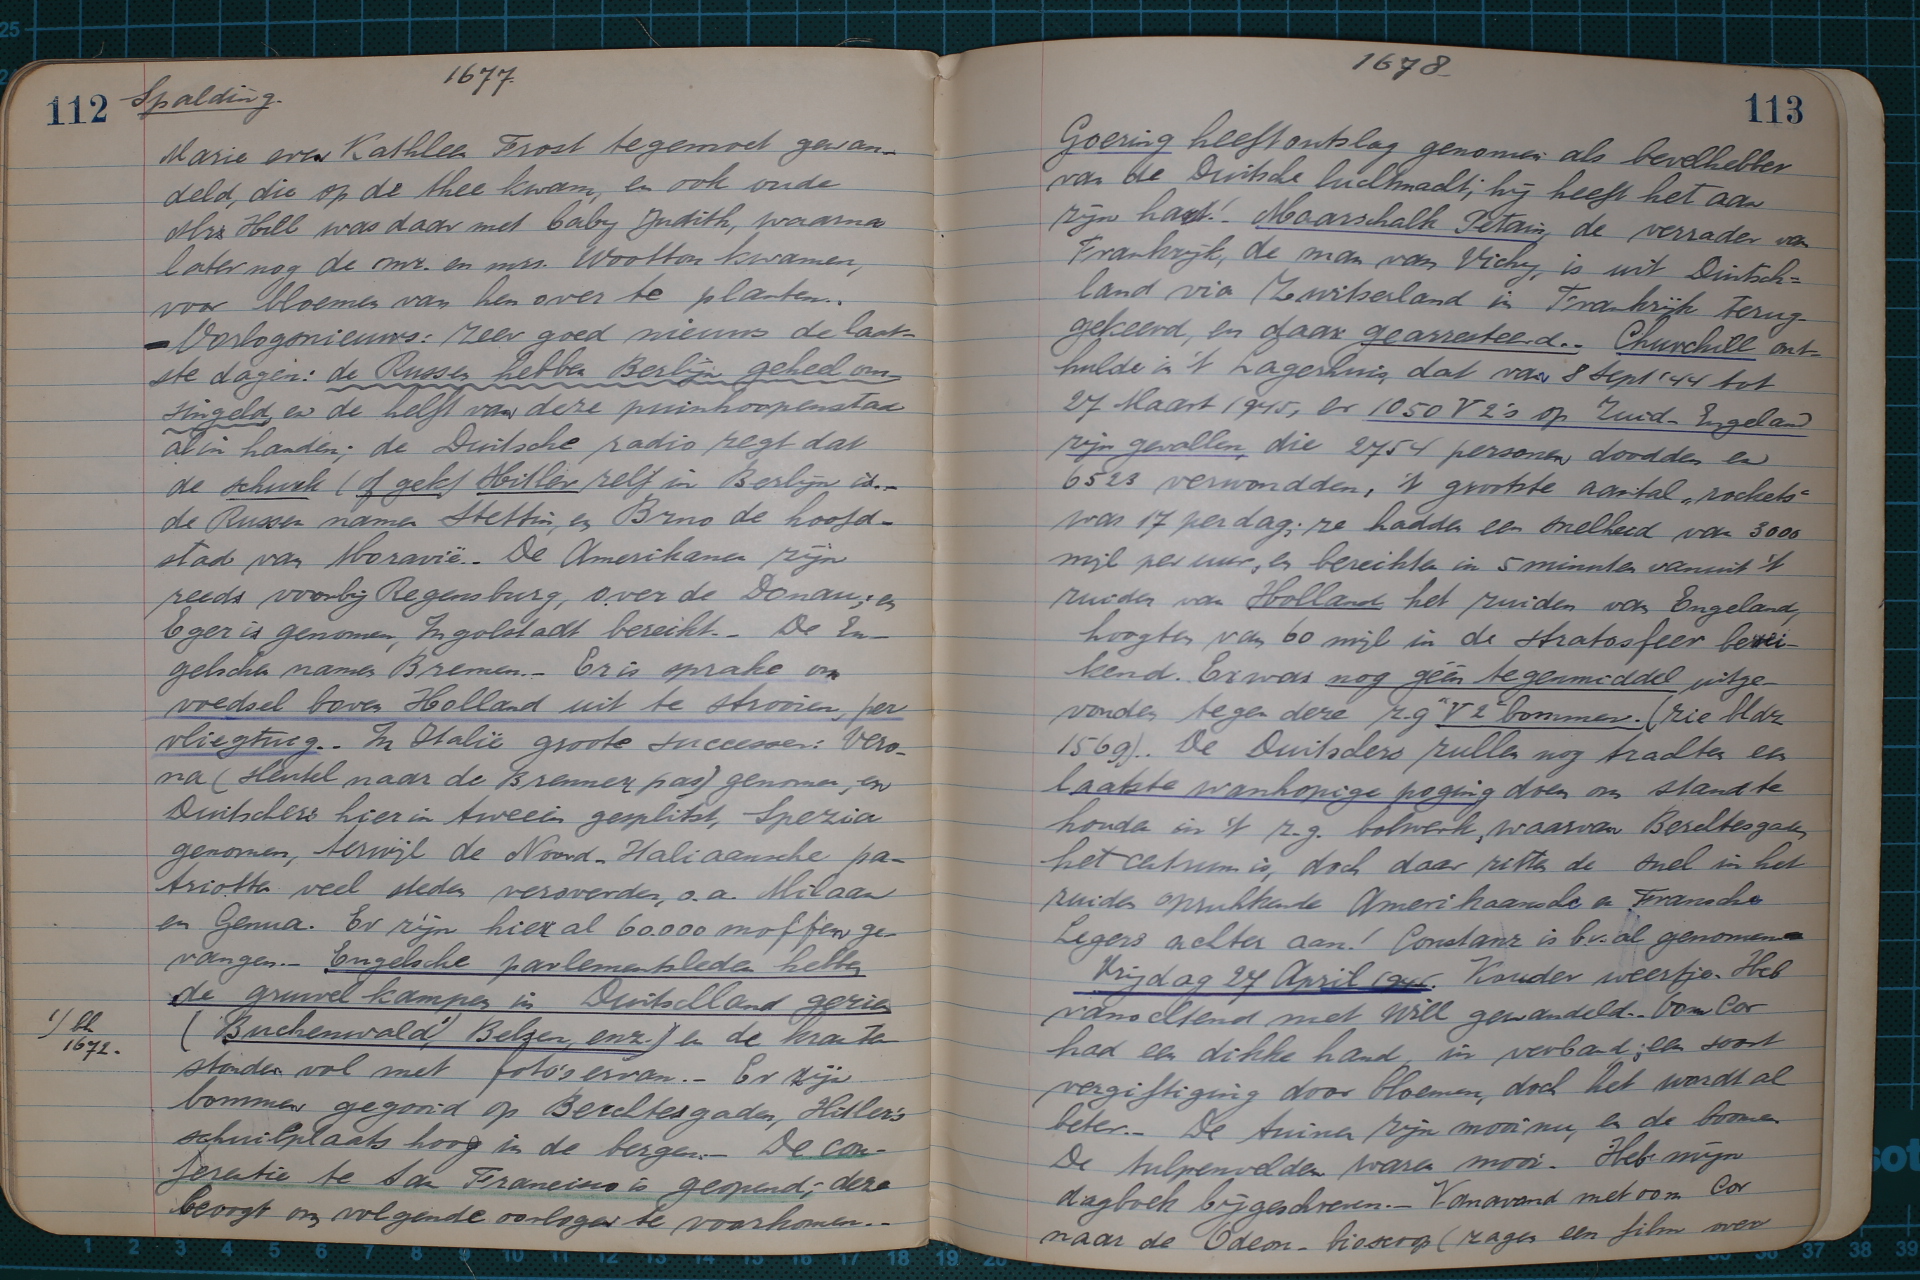 1677.
112 Spalding.
Marie even Kathleen Frost tegemoet gewan-
deld, die op de thee kwam, en ook oude
Mrs Hill was daar met baby Judith, waarna
later nog de mr. en mrs. Wootton kwamen,
voor bloemen van hen over te planten..
- Oorlogsnieuws: Zeer goed nieuws de laat-
ste dagen: de Russen hebben Berlijn geheel om-
singeld, en de helft van deze puinhoopenstad
al in handen; de Duitsche radio zegt dat
de schurk (of gek) Hitler zelf in Berlijn is.-
de Russen namen Stettin, en Brno de hoofd-
stad van Moravië.. De Amerikanen zijn
reeds voorbij Regensburg, over de Donau; en
Eger is genomen, Ingolstadt bereikt.- De En-
gelschen namen Bremen.- Er is sprake om
voedsel boven Holland uit te strooien, per
vliegtuig.- In Italië groote successen: Vero-
na (sleutel naar de Brenner pas) genomen, en
Duitschers hier in tweeën gesplitst, Spezia
genomen, terwijl de Noord-Italiaansche pa-
triotten veel steden veroverden, o.a. Milaan
en Genua. Er zijn hier al 60.000 moffen ge-
vangen.- Engelsche parlementsleden hebben
de gruwelkampen in Duitschland gezien
1) bl.
1672.
(Buchenwald,1) Belsen, enz.) en de kranten
stonden vol met foto's ervan.- Er zijn
bommen gegooid op Berchtesgaden, Hitler's
schuilplaats hoog in de bergen.- De con-
ferentie te San Francisco is geopend; deze
beoogt om volgende oorlogen te voorkomen.-
1678
113
Goering heeft ontslag genomen als bevelhebber
van de Duitsche luchtmacht; hij heeft het aan
zijn hart! Maarschalk Petain, de verrader van
Frankrijk, de man van Vichy, is uit Duitsch-
land via Zwitserland in Frankrijk terug-
gekeerd, en daar gearresteerd.. Churchill ont-
hulde in 't Lagerhuis, dat van 8 Sept '44 tot
27 Maart 1945, er 1050 V2's op Zuid-Engeland
zijn gevallen, die 2754 personen doodden en
6523 verwondden, 't grootste aantal „rockets"
was 17 per dag; ze hadden een snelheid van 3000
mijl per uur, en bereikten in 5 minuten vanuit 't
zuiden van Holland het zuiden van Engeland,
hoogten van 60 mijl in de stratosfeer berei-
kend. Er was nog géén tegenmiddel uitge-
vonden tegen deze z.g "V2" bommen. (zie bldz
1569).. De Duitschers zullen nog trachten een
laatste wanhopige poging doen om stand te
houden in 't z.g. bolwerk, waarvan Berchtesgaden
het centrum is, doch daar zitten de snel in het
zuiden oprukkende Amerikaansche en Fransche
Legers achter aan! Constanz is bv. al genomen-
Vrijdag 27 April 1945. Kouder weertje. Heb
vanochtend met Will gewandeld.. Oom Cor
had een dikke hand, in verband; een soort
vergiftiging door bloemen, doch het wordt al
beter.- De tuinen zijn mooi nu, en de boomen
De tulpenvelden waren mooi.- Heb mijn
dagboek bijgeschreven.- Vanavond met oom Cor
naar de Odeon-bioscoop (zagen een film over